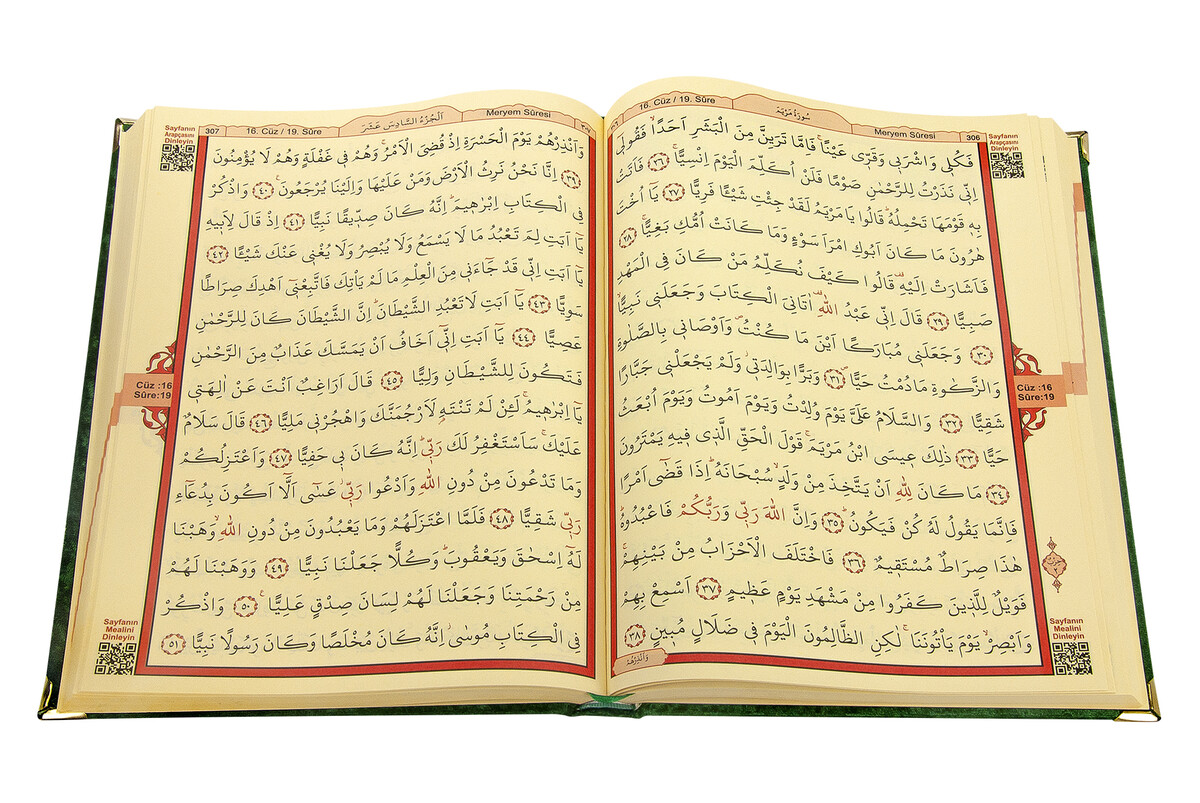 16. Cüz / 19. Sûre
سُورَةُ مَرْيَمَ
Meryem Sûresi
306
Sayfanın
Arapçasını
Dinleyin
فَكُل۪ي وَاشْرَب۪ي وَقَرّ۪ي عَيْنًاۚ فَاِمَّا تَرَيِنَّ مِنَ الْبَشَرِ اَحَدًاۙ فَقُول۪ٓي
اِنّ۪ي نَذَرْتُ لِلرَّحْمٰنِ صَوْمًا فَلَنْ اُكَلِّمَ الْيَوْمَ اِنْسِيًّاۚ ﴿٢٦﴾ فَاَتَتْ
بِه۪ قَوْمَهَا تَحْمِلُهُۜ قَالُوا يَا مَرْيَمُ لَقَدْ جِئْتِ شَيْـًٔا فَرِيًّا ﴿٢٧﴾ يَٓا اُخْتَ
هٰرُونَ مَا كَانَ اَبُوكِ امْرَاَ سَوْءٍ وَمَا كَانَتْ اُمُّكِ بَغِيًّاۚ ﴿٢٨﴾
فَاَشَارَتْ اِلَيْهِۜ قَالُوا كَيْفَ نُكَلِّمُ مَنْ كَانَ فِي الْمَهْدِ
صَبِيًّا ﴿٢٩﴾ قَالَ اِنّ۪ي عَبْدُ اللّٰهِۜ اٰتَانِيَ الْكِتَابَ وَجَعَلَن۪ي نَبِيًّاۙ
﴿٣٠﴾ وَجَعَلَن۪ي مُبَارَكًا اَيْنَ مَا كُنْتُۖ وَاَوْصَان۪ي بِالصَّلٰوةِ
وَالزَّكٰوةِ مَا دُمْتُ حَيًّاۖ ﴿٣١﴾ وَبَرًّا بِوَالِدَت۪يۘ وَلَمْ يَجْعَلْن۪ي جَبَّارًا
شَقِيًّا ﴿٣٢﴾ وَالسَّلَامُ عَلَيَّ يَوْمَ وُلِدْتُ وَيَوْمَ اَمُوتُ وَيَوْمَ اُبْعَثُ
حَيًّا ﴿٣٣﴾ ذٰلِكَ ع۪يسَى ابْنُ مَرْيَمَۚ قَوْلَ الْحَقِّ الَّذ۪ي ف۪يهِ يَمْتَرُونَ
﴿٣٤﴾ مَا كَانَ لِلّٰهِ اَنْ يَتَّخِذَ مِنْ وَلَدٍۙ سُبْحَانَهُۜ اِذَا قَضٰٓى اَمْرًا
فَاِنَّمَا يَقُولُ لَهُ كُنْ فَيَكُونُۜ ﴿٣٥﴾ وَاِنَّ اللّٰهَ رَبّ۪ي وَرَبُّكُمْ فَاعْبُدُوهُۜ
هٰذَا صِرَاطٌ مُسْتَق۪يمٌ ﴿٣٦﴾ فَاخْتَلَفَ الْاَحْزَابُ مِنْ بَيْنِهِمْۚ
فَوَيْلٌ لِلَّذ۪ينَ كَفَرُوا مِنْ مَشْهَدِ يَوْمٍ عَظ۪يمٍ ﴿٣٧﴾ اَسْمِعْ بِهِمْ
وَاَبْصِرْۙ يَوْمَ يَأْتُونَنَا لٰكِنِ الظَّالِمُونَ الْيَوْمَ ف۪ي ضَلَالٍ مُب۪ينٍ ﴿٣٨﴾
وَاَنْذِرْهُمْ
Cüz :16
Sûre:19
Sayfanın
Mealini
Dinleyin
Sayfanın
Arapçasını
Dinleyin
307
16. Cüz / 19. Sûre
اَلْجُزْءُ السَّادِسَ عَشَرَ
Meryem Sûresi
٣٠٧
وَاَنْذِرْهُمْ يَوْمَ الْحَسْرَةِ اِذْ قُضِيَ الْاَمْرُۢ وَهُمْ ف۪ي غَفْلَةٍ وَهُمْ لَا يُؤْمِنُونَ
﴿٣٩﴾ اِنَّا نَحْنُ نَرِثُ الْاَرْضَ وَمَنْ عَلَيْهَا وَاِلَيْنَا يُرْجَعُونَ۟ ﴿٤٠﴾ وَاذْكُرْ
فِي الْكِتَابِ اِبْرٰه۪يمَۜ اِنَّهُ كَانَ صِدّ۪يقًا نَبِيًّا ﴿٤١﴾ اِذْ قَالَ لِاَب۪يهِ
يَٓا اَبَتِ لِمَ تَعْبُدُ مَا لَا يَسْمَعُ وَلَا يُبْصِرُ وَلَا يُغْن۪ي عَنْكَ شَيْـًٔا ﴿٤٢﴾
يَٓا اَبَتِ اِنّ۪ي قَدْ جَٓاءَن۪ي مِنَ الْعِلْمِ مَا لَمْ يَأْتِكَ فَاتَّبِعْن۪ٓي اَهْدِكَ صِرَاطًا
سَوِيًّا ﴿٤٣﴾ يَٓا اَبَتِ لَا تَعْبُدِ الشَّيْطَانَۜ اِنَّ الشَّيْطَانَ كَانَ لِلرَّحْمٰنِ
عَصِيًّا ﴿٤٤﴾ يَٓا اَبَتِ اِنّ۪ٓي اَخَافُ اَنْ يَمَسَّكَ عَذَابٌ مِنَ الرَّحْمٰنِ
فَتَكُونَ لِلشَّيْطَانِ وَلِيًّا ﴿٤٥﴾ قَالَ اَرَاغِبٌ اَنْتَ عَنْ اٰلِهَت۪ي
يَٓا اِبْرٰه۪يمُۚ لَئِنْ لَمْ تَنْتَهِ لَاَرْجُمَنَّكَ وَاهْجُرْن۪ي مَلِيًّا ﴿٤٦﴾ قَالَ سَلَامٌ
عَلَيْكَۚ سَاَسْتَغْفِرُ لَكَ رَبّ۪يۜ اِنَّهُ كَانَ ب۪ي حَفِيًّا ﴿٤٧﴾ وَاَعْتَزِلُكُمْ
وَمَا تَدْعُونَ مِنْ دُونِ اللّٰهِ وَاَدْعُوا رَبّ۪يۘ عَسٰٓى اَلَّٓا اَكُونَ بِدُعَٓاءِ
رَبّ۪ي شَقِيًّا ﴿٤٨﴾ فَلَمَّا اعْتَزَلَهُمْ وَمَا يَعْبُدُونَ مِنْ دُونِ اللّٰهِۙ وَهَبْنَا
لَهُٓ اِسْحٰقَ وَيَعْقُوبَۜ وَكُلًّا جَعَلْنَا نَبِيًّا ﴿٤٩﴾ وَوَهَبْنَا لَهُمْ
مِنْ رَحْمَتِنَا وَجَعَلْنَا لَهُمْ لِسَانَ صِدْقٍ عَلِيًّا۟ ﴿٥٠﴾ وَاذْكُرْ
فِي الْكِتَابِ مُوسٰىۘ اِنَّهُ كَانَ مُخْلَصًا وَكَانَ رَسُولًا نَبِيًّا ﴿٥١﴾
Cüz :16
Sûre:19
Sayfanın
Mealini
Dinleyin